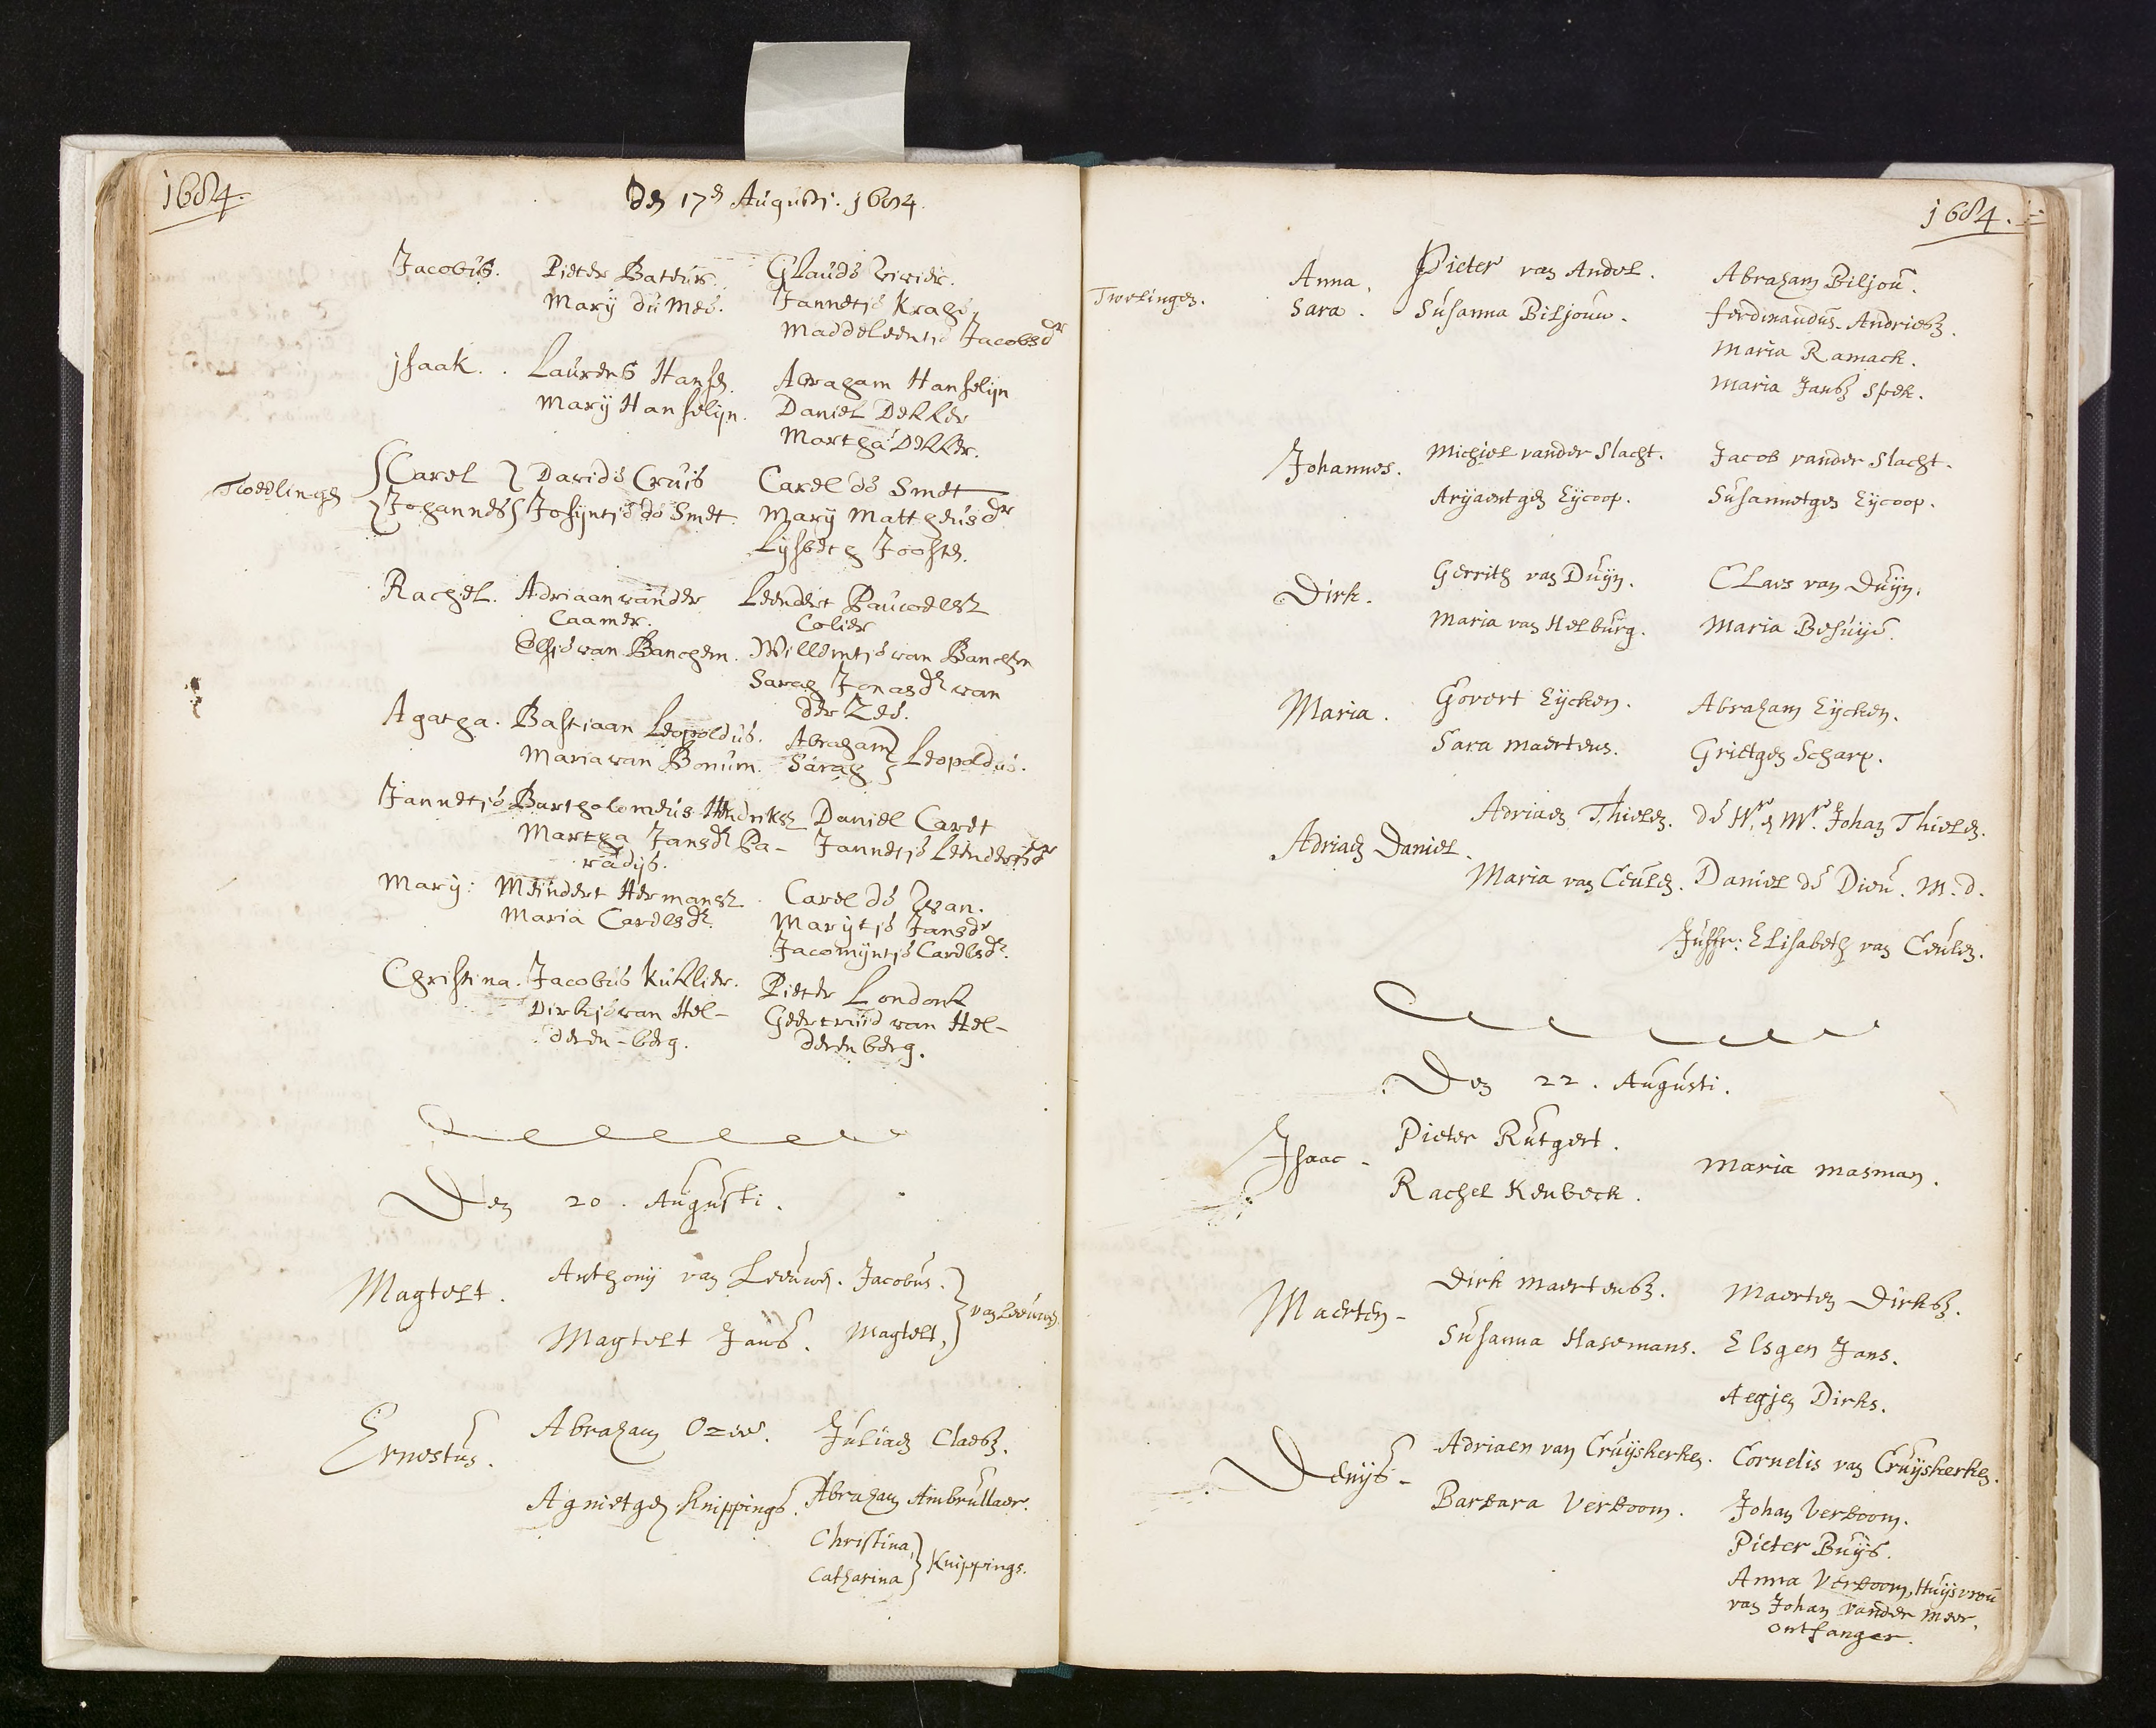 1684.
Den 17en Augusti. 1684.
Jacobus. Pieter Bateur. Glaude Vivier.
Mary du Mee. Jannetje Krahe,
Maddeleentje Jacobsdr
jsaak. Laurens Hansen. Abraham Hanselijn
Mary Hanselijn. Daniel Dekker
Martha Dekker.
Tweelingen
Carel } Davide Cruis Carel de Smet
Johannes } Josyntje de Smet. Mary Mattheusdr
Lysbeth Joosten.
Rachel. Adriaan vander Leendert Pauwelsz
Caamer. Colier
Elsje van Banchem. Willemtje van Banchem
Sarah Jonasdr van
der Zee.
Agatha. Bastiaan Leopoldus. Abraham } Leopoldus.
Maria van Bonum. Sarah }
Jannetje Bartholomeus Hendriksz Daniel Caret
Martha Jansdr Pa- Jannetje Leendertsdr
radys.
Mary: Meindert Hermansz. Carel de Wan.
Maria Carelsdr. Marytje Jansdr
Jacomyntje Carelsdr.
Christina. Jacobus Kuklier. Pieter Londonk
Dirkje van Hel- Geertruid van Hel-
deren-berg. derenberg.
Den 20. Augusti.
Magtelt. Anthonij van Leeuwen. Jacobus. } van Leeuwen.
Magtelt Jans. Magtelt, }
Ernestus. Abraham Ozee. Juliaen Claesz.
Agnietgen Knippings. Abraham Ambrullaer.
Christina, } Knippings.
Catharina }
1684.
Tweelingen.
Anna, Pieter van Andel. Abraham Biljou.
Sara. Susanna Biljouw. ferdinandus Andriesz.
Maria Ramack.
Maria Jansz Spek.
Johannes. Michiel vander Slacht. Jacob vander Slacht.
Aryaentgen Eycoop. Susannetgen Eycoop.
Dirk. Gerrith van Duyn. Claes van Duyn.
Maria van Helburg. Maria Besuye.
Maria. Govert Eycken. Abraham Eycken.
Sara Maertens. Grietgen Scharp.
Adriaen Daniel. Adriaen Thielen. de Hr. en Mr. Johan Thielen.
Maria van Ceulen. Daniel de Dieu. M.d.
Juffr: Elisabeth van Ceulen.
Den 22. Augusti.
Isaac - Pieter Rutgert. Maria Masman.
Rachel Keubeck.
Maerten - Dirk Maertensz. Maerten Dirksz.
Susanna Hasemans. Elsgen Jans.
Aegjen Dirks.
Denys - Adriaen van Cruyskerken. Cornelis van Cruyskerken.
Barbara Verboom. Johan Verboom.
Pieter Buys.
Anna Verboom, Huysvrou
van Johan vander Meer,
ontfanger.